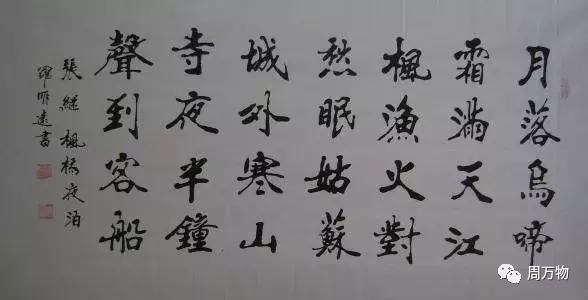 月落烏啼
霜滿天江
楓漁火對
愁眠姑蘇
城外寒山
寺夜半鐘
聲到客船
張継楓橋夜泊
遠書
周万物